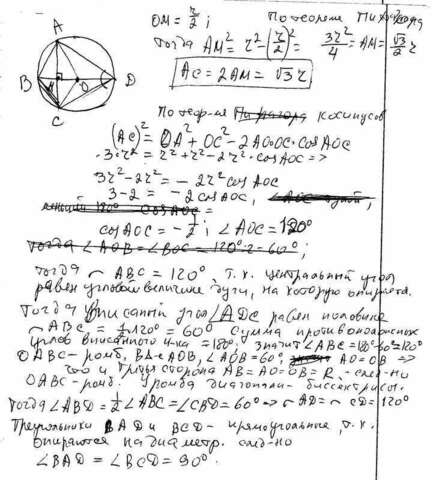 A
B M O D
C
OM = r/2 ; По теореме Пифагора
Тогда AM² = r² - (r/2)² = 3r²/4 = AM = √3/2 r
AC = 2AM = √3 r
По теор-ме косинусов
(AC)² = OA² + OC² - 2AO·OC·cosAOC
3·r² = r² + r² - 2r²·cosAOC =>
3r² - 2r² = - 2r² cosAOC
3-2 = -2cosAOC,
cosAOC = -1/2 ; ∠AOC = 120°
Тогда ∠AOB = ∠BOC = 120°:2 = 60° ;
тогда ⌢ ABC = 120° т.к. центральный угол
равен угловой величине дуги, на которую опирается.
Тогда вписанный угол ∠ADC равен половине
⌢ ABC = 1/2·120° = 60° Сумма противоположных
углов вписанного 4-ка = 180°, значит ∠ABC = 180°-60°=120°
OABC - ромб, ∠AOB = 60°; AO = OB =>
что и третья сторона AB = AO = OB = R, след-но
OABC - ромб. У ромба диагонали - биссектрисы.
Тогда ∠ABD = 1/2 ∠ABC = ∠CBD = 60° => ⌢ AD = ⌢ CD = 120°
Треугольники BAD и BCD - прямоугольные, т.к.
опираются на диаметр. след-но
∠BAD = ∠BCD = 90°.